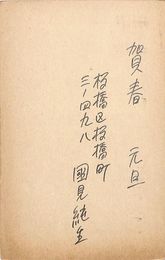 賀春 元旦
板橋区板橋町
三ノ四九八
國見純生